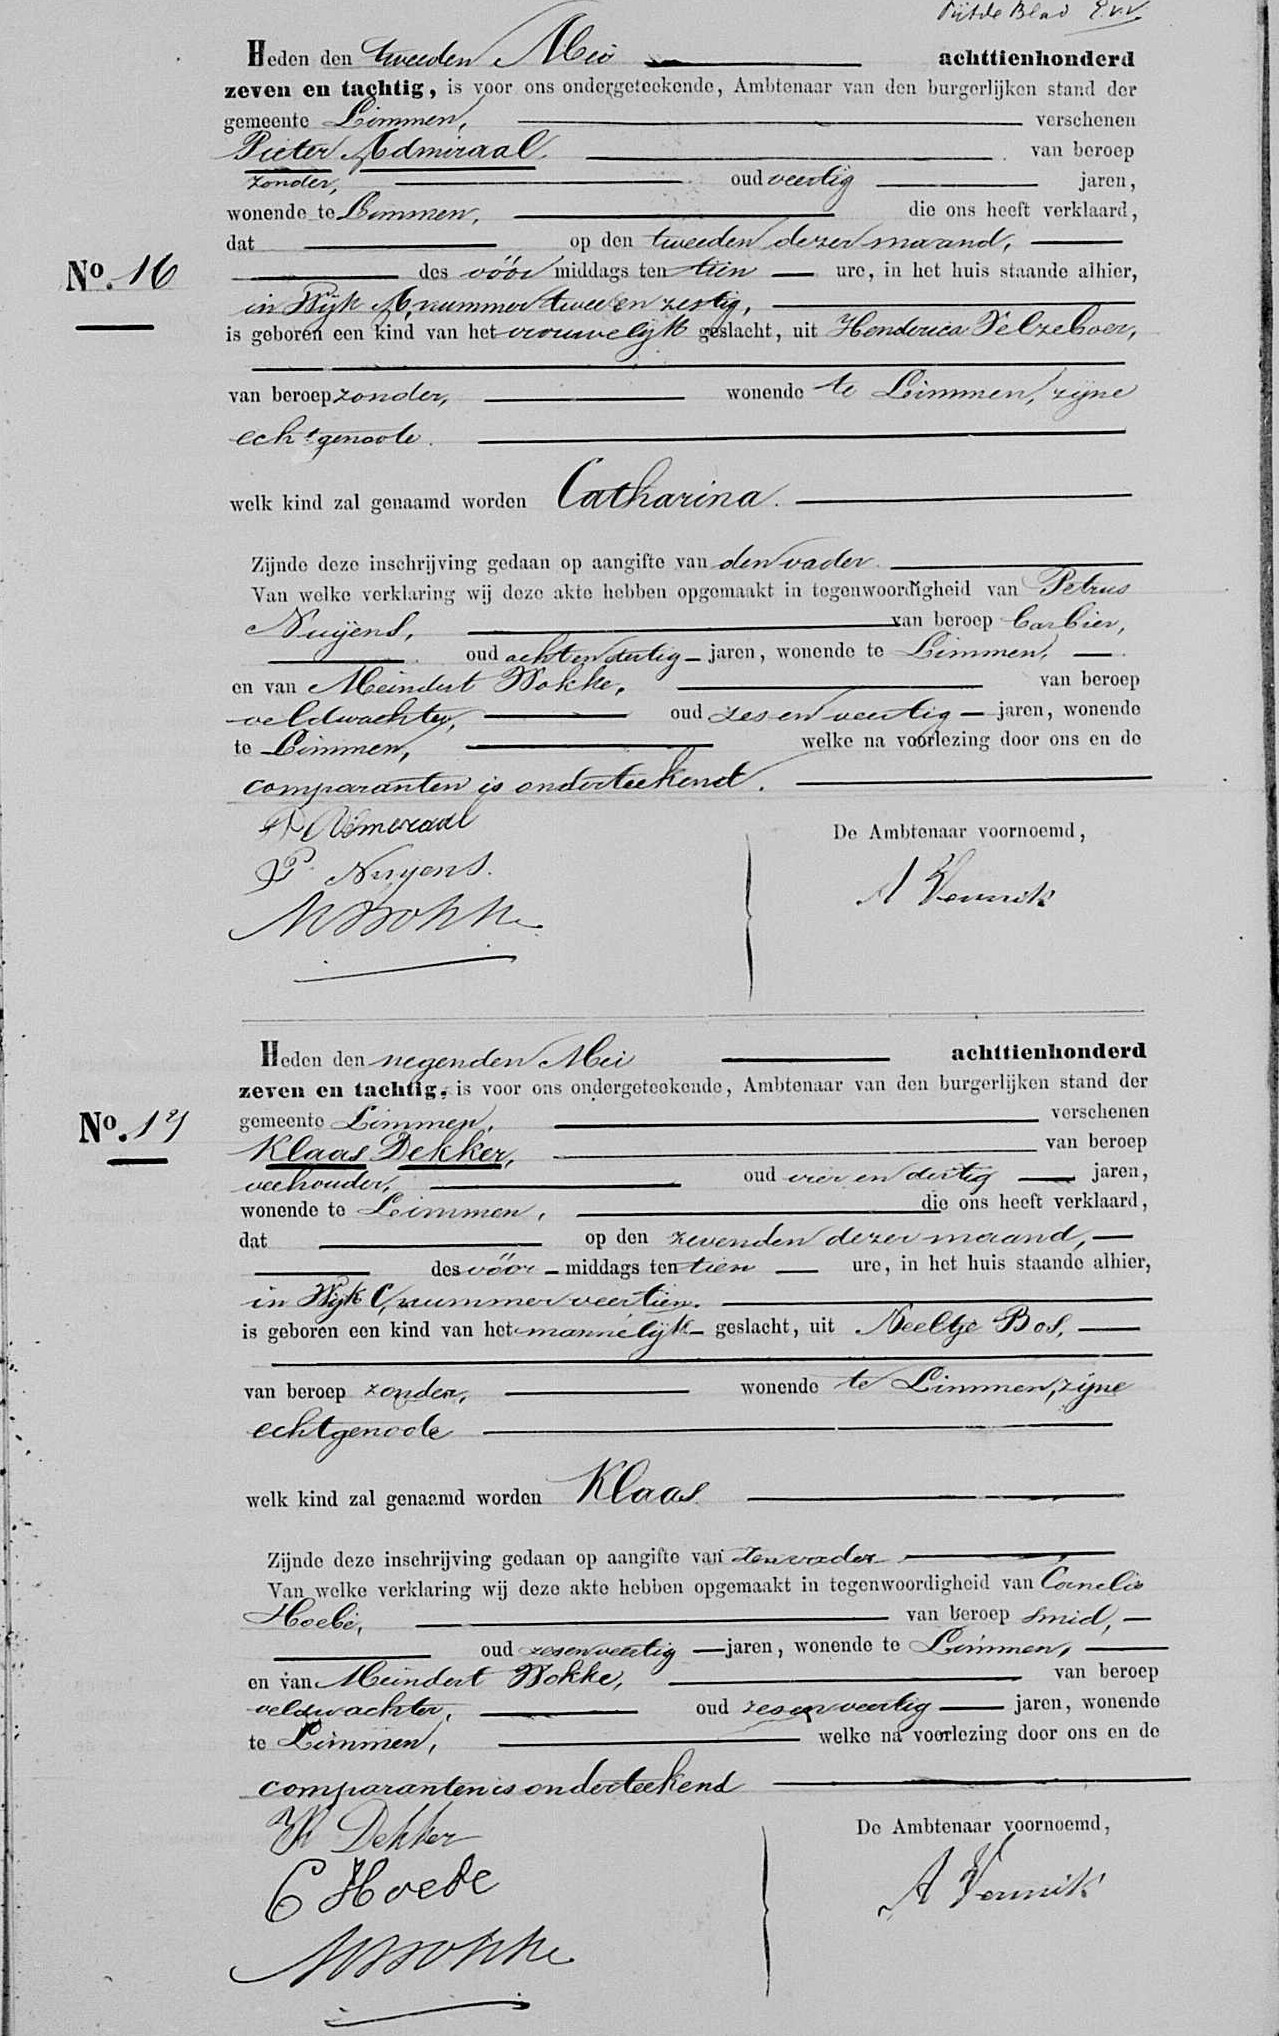 Vijfde Blad
Heden den tweeden Mei achttienhonderd
zeven en tachtig, is voor ons ondergeteekende, Ambtenaar van den burgerlijken stand der
gemeente Limmen, verschenen
Pieter Admiraal. van beroep
zonder, oud veertig jaren,
wonende te Limmen, die ons heeft verklaard,
dat op den tweeden dezer maand,
No. 16 des vóór middags ten tien ure, in het huis staande alhier,
in Wijk A, nummer twee en zestig,
is geboren een kind van het vrouwelijk geslacht, uit Henderica Pelzeboer,
van beroep zonder, wonende te Limmen, zijne
echtgenoote.
welk kind zal genaamd worden Catharina.
Zijnde deze inschrijving gedaan op aangifte van den vader
Van welke verklaring wij deze akte hebben opgemaakt in tegenwoordigheid van Petrus
Nuyens, van beroep barbier,
oud acht en dertig jaren, wonende te Limmen,
en van Meindert Wokke, van beroep
veldwachter, oud zes en veertig jaren, wonende
te Limmen, welke na voorlezing door ons en de
comparanten is onderteekend.
P Admeraal
De Ambtenaar voornoemd,
P Nuyens.
A Vennik
M Wokke
Heden den negenden Mei achttienhonderd
zeven en tachtig, is voor ons ondergeteekende, Ambtenaar van den burgerlijken stand der
No. 17 gemeente Limmen, verschenen
Klaas Dekker, van beroep
veehouder, oud vier en dertig jaren,
wonende te Limmen, die ons heeft verklaard,
dat op den zevenden dezer maand,
des vóór middags ten tien ure, in het huis staande alhier,
in Wijk C, nummer veertien.
is geboren een kind van het mannelijk geslacht, uit Neeltje Bos,
van beroep zonder, wonende te Limmen, zijne
echtgenoote
welk kind zal genaamd worden Klaas
Zijnde deze inschrijving gedaan op aangifte van den vader
Van welke verklaring wij deze akte hebben opgemaakt in tegenwoordigheid van Cornelis
Hoebe, van beroep smid,
oud zes en veertig jaren, wonende te Limmen,
en van Meindert Wokke, van beroep
veldwachter, oud zes en veertig jaren, wonende
te Limmen, welke na voorlezing door ons en de
comparanten is onderteekend
K Dekker
De Ambtenaar voornoemd,
C Hoebe
A Vennik
M Wokke